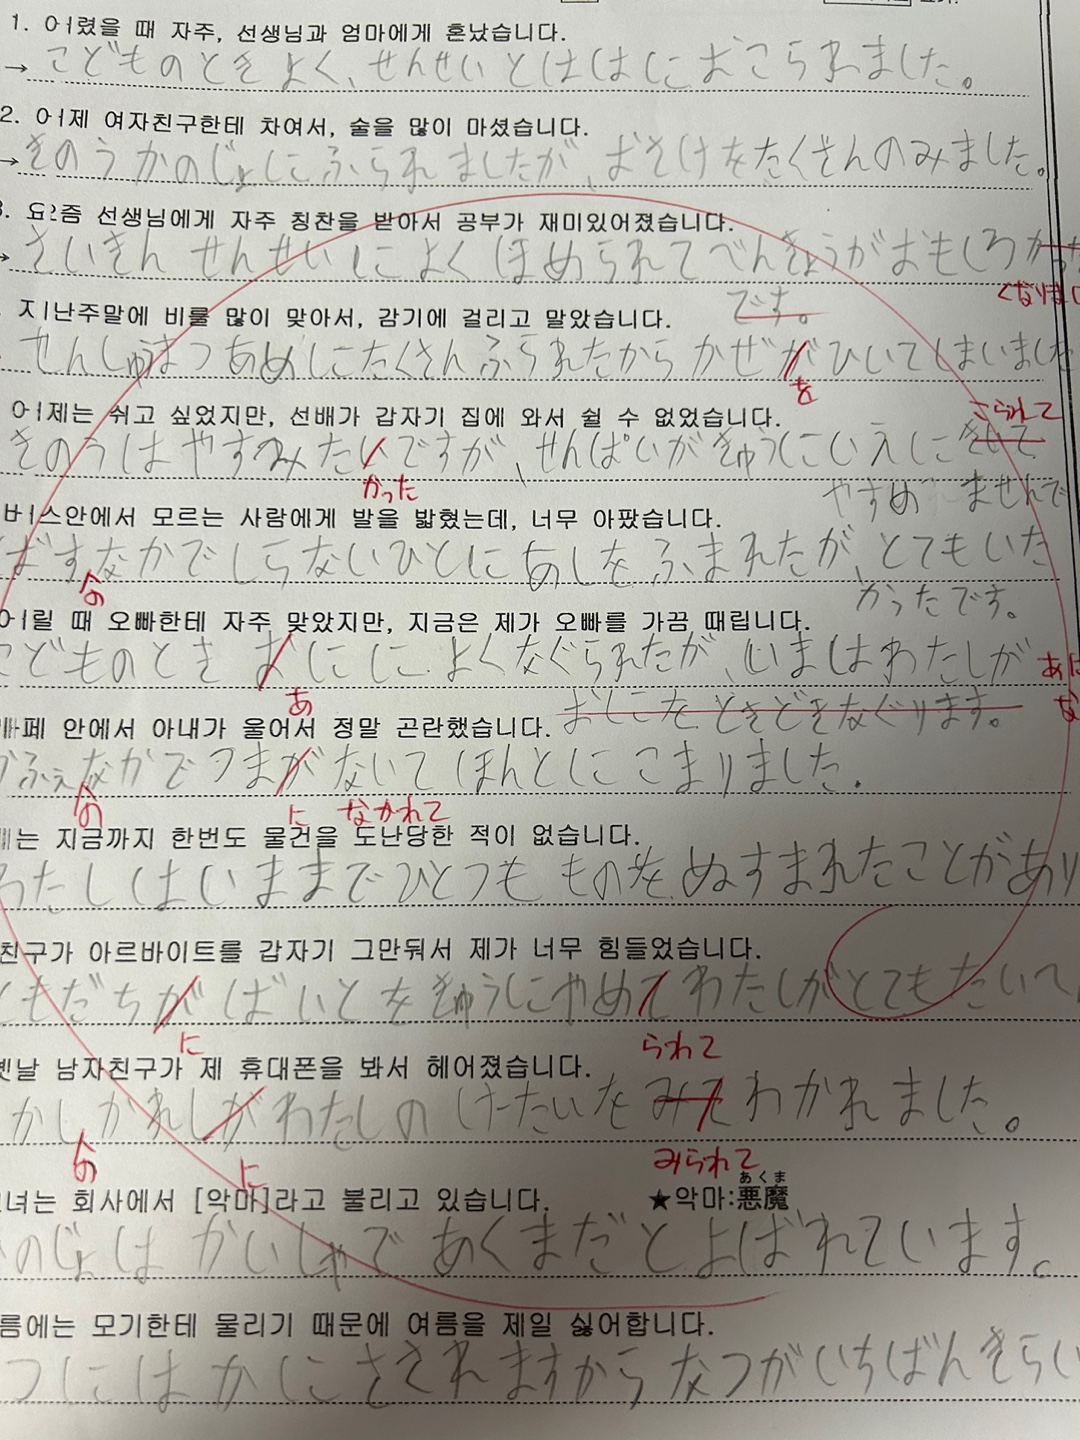 1. 어렸을 때 자주, 선생님과 엄마에게 혼났습니다.
→ こどものとき よく、せんせいとははにおこられました。
2. 어제 여자친구한테 차여서, 술을 많이 마셨습니다.
→ きのう かのじょにふられましたが、おさけをたくさんのみました。
3. 요즘 선생님에게 자주 칭찬을 받아서 공부가 재미있어졌습니다.
→ さいきん せんせいに よく ほめられて べんきょうがおもしろ
くなりまし
です。
지난주말에 비를 많이 맞아서, 감기에 걸리고 말았습니다.
せんしゅうまつ あめにたくさん ふられたから かぜ が ひいてしまいました
を
어제는 쉬고 싶었지만, 선배가 갑자기 집에 와서 쉴 수 없었습니다.
こられて
きのうは やすみたい ですが、せんぱいが きゅうに いえに きて
かった
やすめ ませんで
버스안에서 모르는 사람에게 발을 밟혔는데, 너무 아팠습니다.
ばす なかで しらないひとに あしを ふまれたが、とても いた
の
かったです。
어릴 때 오빠한테 자주 맞았지만, 지금은 제가 오빠를 가끔 때립니다.
こどものとき おにに よく なぐられたが、いまは わたしが
あ
おにを ときどき なぐります。
카페 안에서 아내가 울어서 정말 곤란했습니다.
かふぇ なかで つまが ないて ほんとに こまりました.
の に なかれて
는 지금까지 한번도 물건을 도난당한 적이 없습니다.
わたしは いままで ひとつも ものを ぬすまれたことがあり
친구가 아르바이트를 갑자기 그만둬서 제가 너무 힘들었습니다.
ともだちが ばいとを きゅうに やめて わたしが とても たいへ
に られて
옛날 남자친구가 제 휴대폰을 봐서 헤어졌습니다.
かし かれしが わたしの けーたいを みて わかれました。
の に みられて
녀는 회사에서 [악마]라고 불리고 있습니다. ★악마:悪魔
あくま
のじょは かいしゃで あくまだと よばれています。
름에는 모기한테 물리기 때문에 여름을 제일 싫어합니다.
つには かにさされますから なつがいちばんきらい